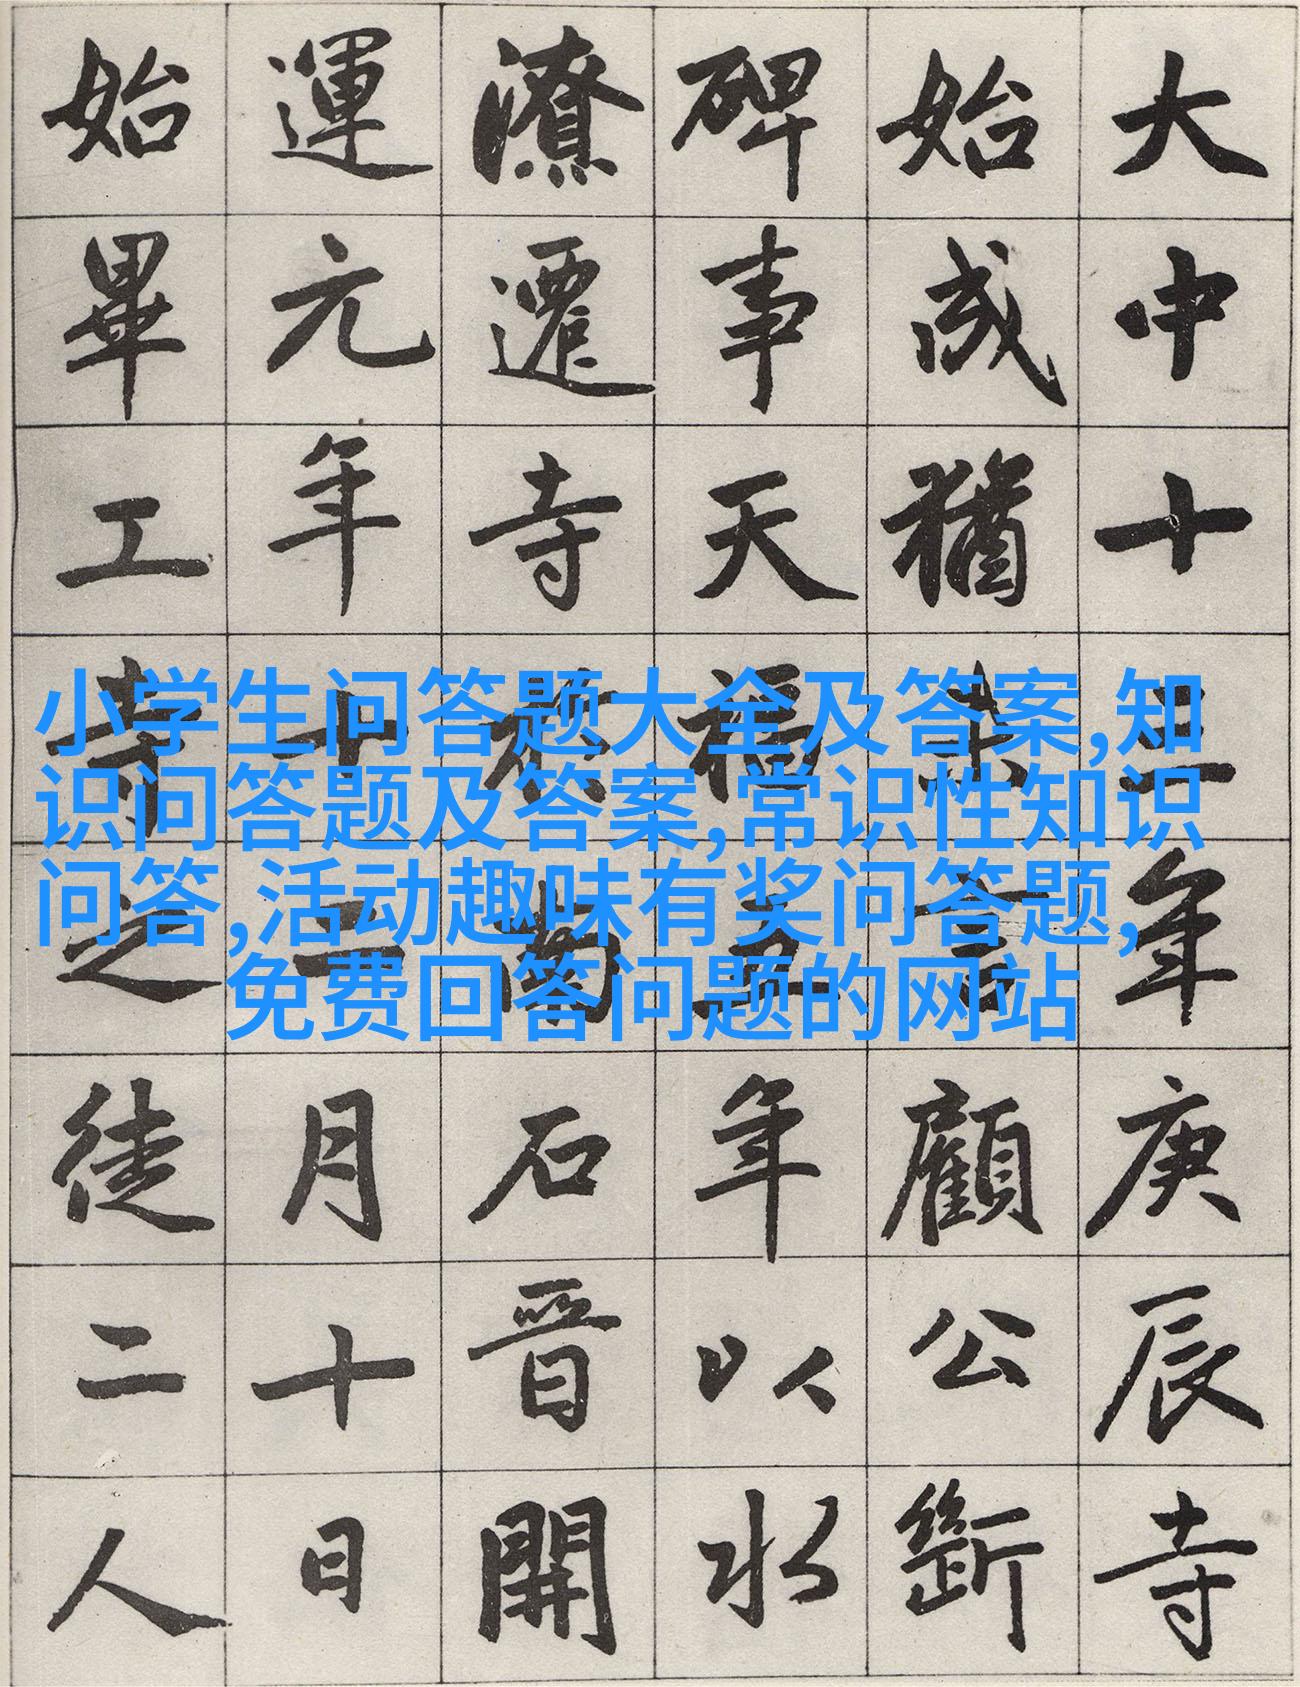 大中十三年庚辰寺
始成猶言顧公斷
碑事天福五年以水
潦遷寺於石晉開
運元年十二月十日
始畢工寺之徒二人
小学生问答题大全及答案,知
识问答题及答案,常识性知识
问答,活动趣味有奖问答题,
免费回答问题的网站